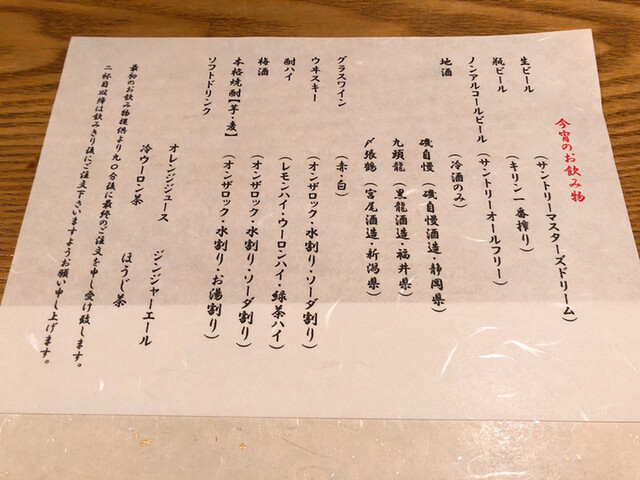 今宵のお飲み物
生ビール（サントリーマスターズドリーム）
瓶ビール（キリン一番搾り）
ノンアルコールビール（サントリーオールフリー）
地酒（冷酒のみ）
磯自慢（磯自慢酒造・静岡県）
九頭龍（黒龍酒造・福井県）
〆張鶴（宮尾酒造・新潟県）
グラスワイン（赤・白）
ウヰスキー（オンザロック・水割り・ソーダ割り）
酎ハイ（レモンハイ・ウーロンハイ・緑茶ハイ）
梅酒（オンザロック・水割り・ソーダ割り）
本格焼酎【芋・麦】（オンザロック・水割り・お湯割り）
ソフトドリンク
オレンジジュース ジンジャーエール
冷ウーロン茶 ほうじ茶
最初のお飲み物提供より九〇分後に最終のご注文を申し受け致します。
二杯目以降は飲みきり後にご注文下さいますようお願い申し上げます。